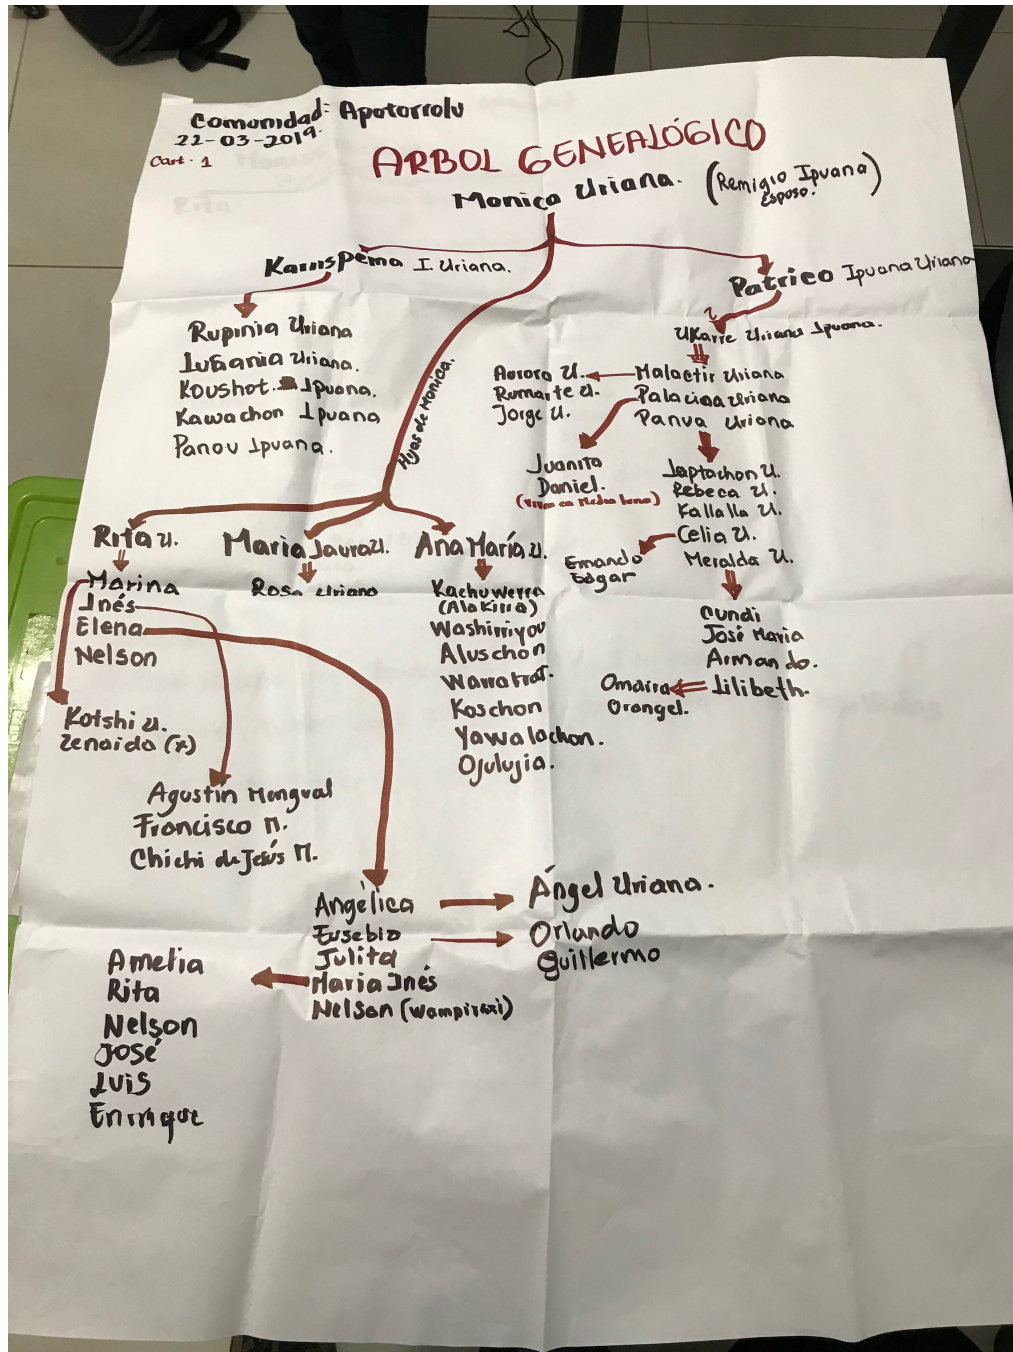 Comunidad: Apotorrolu
22-03-2019.
Cart. 1
ARBOL GENEALÓGICO
Monica Uriana. (Remigio Ipuana)
Esposo.
I. Uriana.
Patrico Ipuana Uriana
Rupinia Uriana
Uriana.
Koushot. Ipuana.
Kawachon Ipuana
Panou Ipuana.
Hijas de Monica.
Ukarre Uriana Ipuana.
Malactir Uriana
Palacina Uriana
Panua Uriana
Aurora U.
Rumarte U.
Jorge U.
Juanita
Daniel.
(Viven en Media luna)
Japtachon U.
Rebeca U.
Kallalla U.
Celia U.
Meralda U.
Ernando
Edgar
Cundi
José Maria
Armando.
Lilibeth.
Omaira
Orangel.
Rita U.
Maria Laura U.
Ana María U.
Marina
Inés
Elena
Nelson
Rosa Uriana
Kachuwerra
(Alakirra)
Washirriyou
Aluschon
Koschon
Yawalachon.
Ojulujia.
Kotshi U.
Zenaida (x)
Agustín Mengual
Francisco M.
Chichi de Jesús M.
Angélica
Eusebio
Julita
Maria Inés
Nelson
Ángel Uriana.
Orlando
Guillermo
Amelia
Rita
Nelson
José
Luis
Enrrique